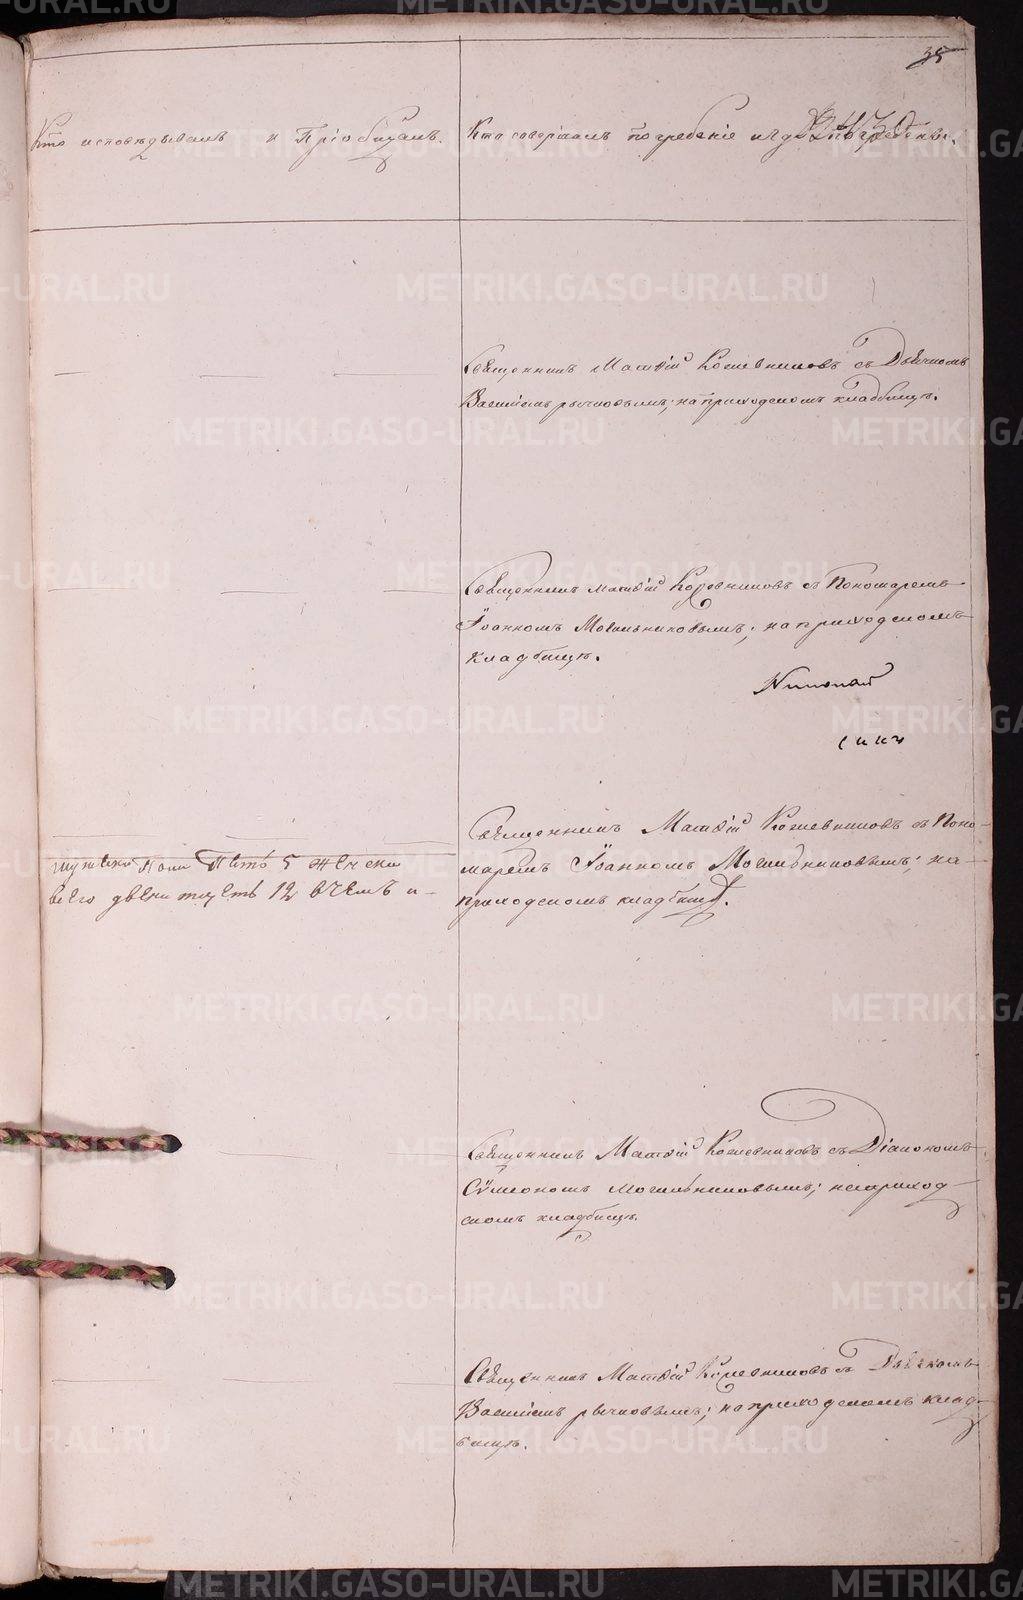 35
Кто исповѣдывалъ и Пріобщалъ.
Кто совершалъ погребеніе и гдѣ погребены.
Священникъ Матѳій Кожевниковъ съ Дьячкомъ
Василіемъ Рычковымъ; на приходскомъ кладбищѣ.
Священникъ Матѳій Кожевниковъ съ Пономаремъ
Іоанномъ Могильниковымъ; на приходскомъ
кладбищѣ.
Николай
Священникъ Матѳій Кожевниковъ съ Поно-
маремъ Іоанномъ Могильниковымъ; на
приходскомъ кладбищѣ.
мужеска пола петь 5 женска
всего двенатцеть 12 вчемъ и
Священникъ Матѳій Кожевниковъ съ Діакономъ
Сѵмеономъ Могильниковымъ; на приход-
скомъ кладбищѣ.
Священникъ Матѳій Кожевниковъ съ Дьячкомъ
Василіемъ Рычковымъ; на приходскомъ клад-
бищѣ.
METRIKI.GASO-URAL.RU